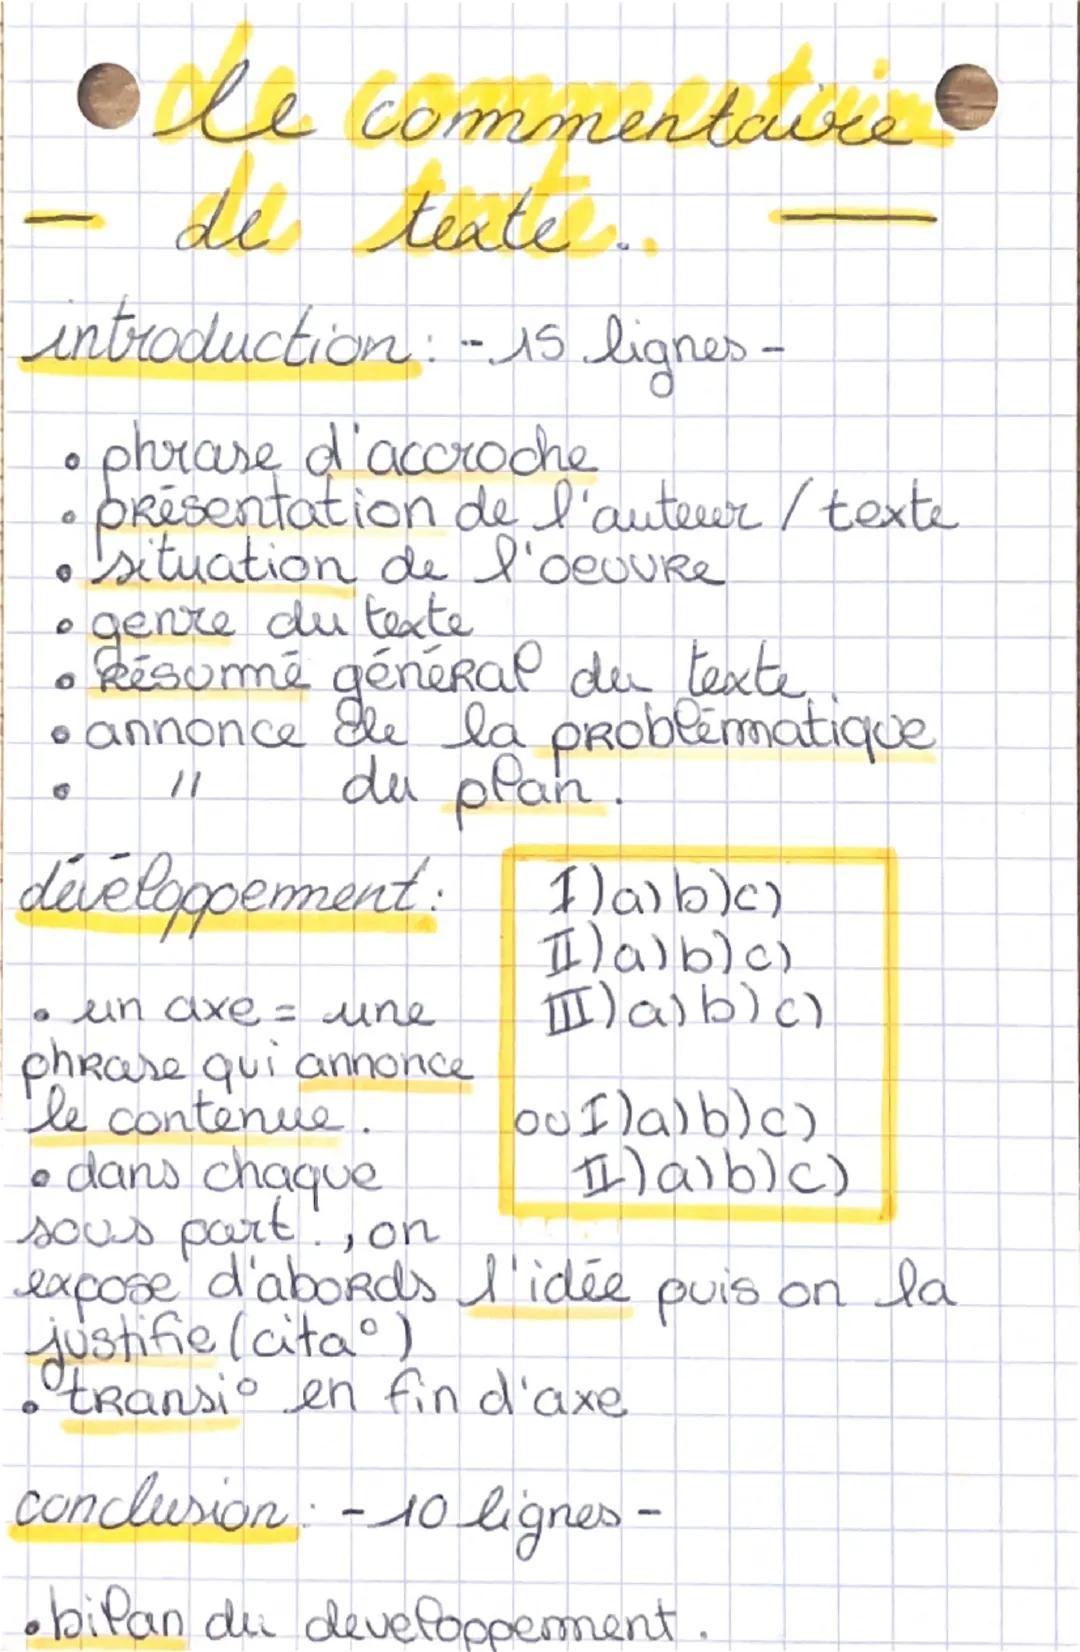 le commentaire
de texte..
introduction : - 15 lignes -
• phrase d'accroche
• présentation de l'auteur / texte
• situation de l'oeuvre
• genre du texte
• résumé général du texte.
• annonce de la problématique
• " du plan.
développement :
• un axe = une
phrase qui annonce
le contenue.
• dans chaque
sous part°, on
expose d'abords l'idée puis on la
justifie (cita°)
• transi° en fin d'axe
I) a) b) c)
II) a) b) c)
III) a) b) c)
ou I) a) b) c)
II) a) b) c)
conclusion : - 10 lignes -
• bilan du developpement.